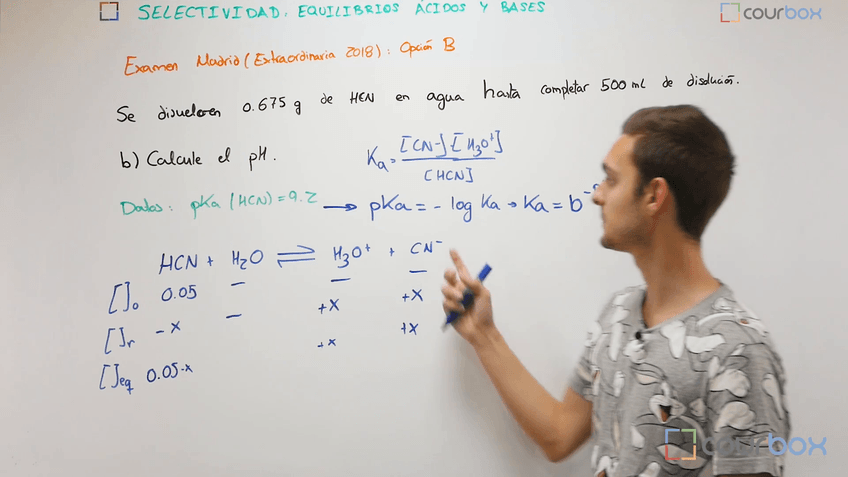 SELECTIVIDAD. EQUILIBRIOS ÁCIDOS Y BASES
courbox
Examen Madrid (Extraordinaria 2018): Opción B
Se disuelven 0.675 g de HCN en agua hasta completar 500 mL de disolución.
b) Calcule el pH.
Ka = [CN-]·[H3O+] / [HCN]
Datos: pKa (HCN) = 9.2 → pKa = - log Ka → Ka = b^-9
HCN + H2O ⇌ H3O+ + CN-
[]o 0.05 – – –
[]r -x – +x +x
[]eq 0.05-x +x +x
courbox